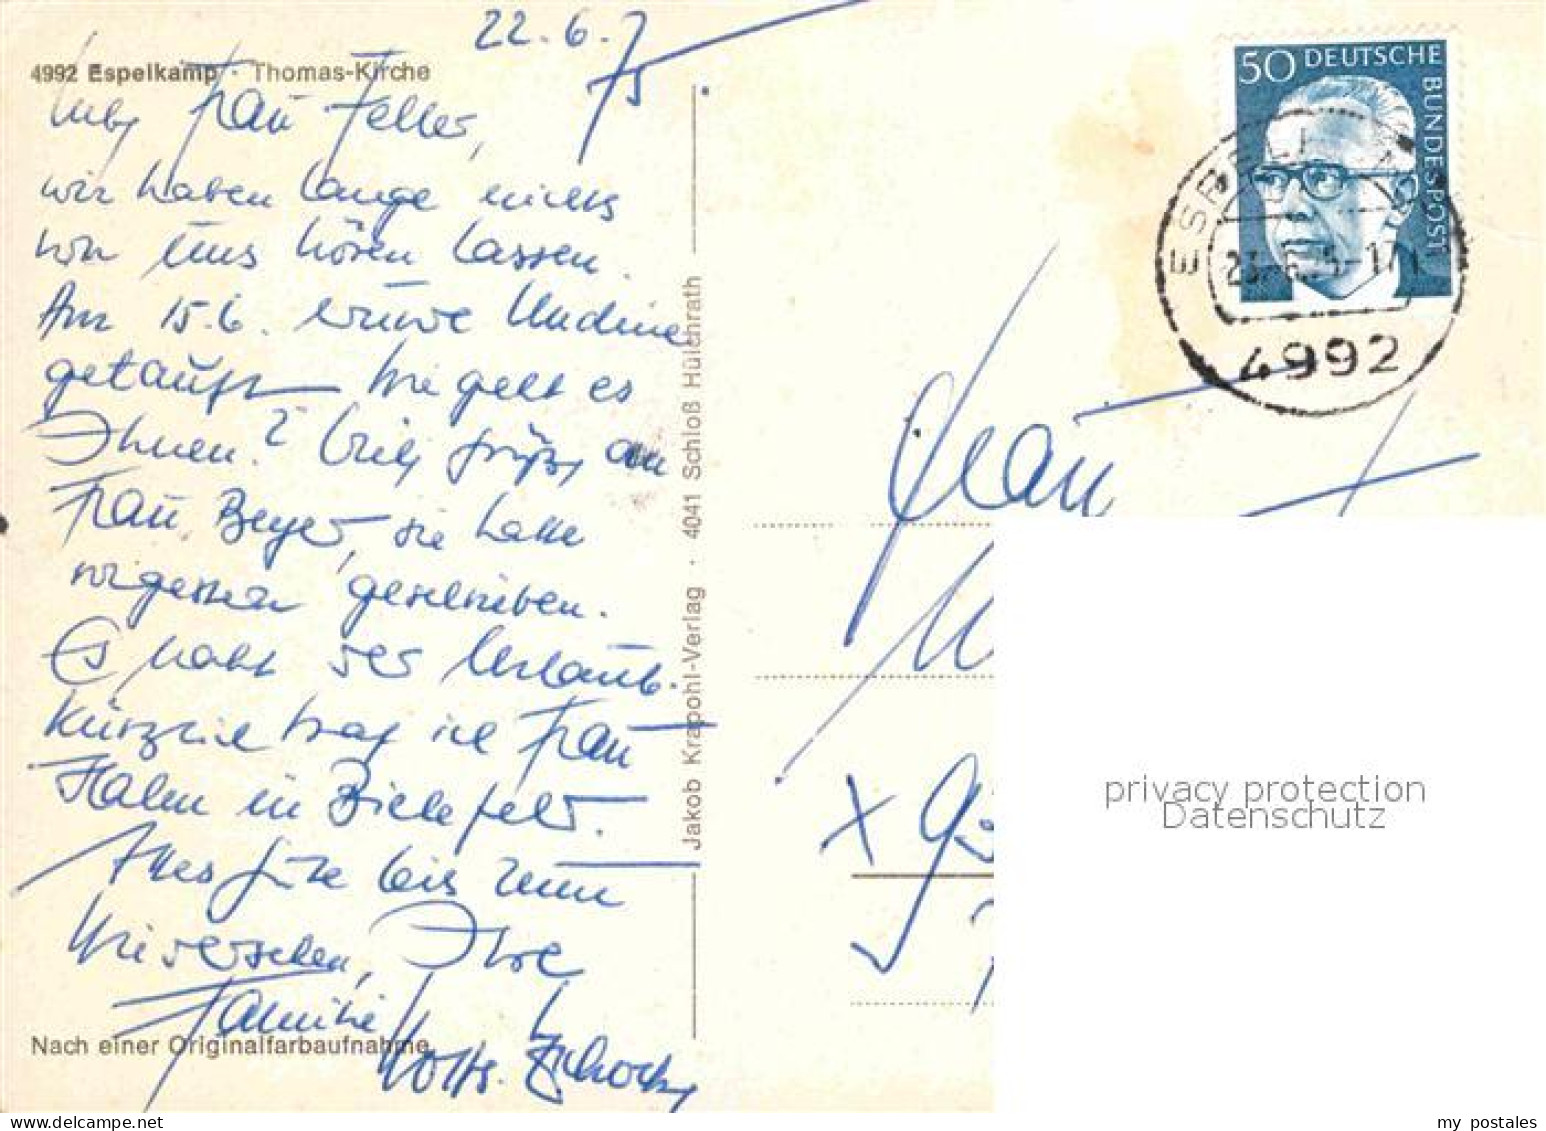 22.6.75
4992 Espelkamp · Thomas-Kirche
Liebe Frau Feller,
wir haben lange nichts
von uns hören lassen.
Am 15.6. wurde Undine
getauft. Wie geht es
Ihnen? Viele Grüße an
Frau Beyer, sie hatte
vorgestern geschrieben.
Es naht der Urlaub.
Kürzlich traf ich Frau
Halm in Bielefeld.
Alles Gute bis zum
Wiedersehen, Ihre
Familie
Nach einer Originalfarbaufnahme
Jakob Krapohl-Verlag · 4041 Schloß Hülchrath
50 DEUTSCHE
BUNDESPOST
4992
Frau
privacy protection
Datenschutz
my postales